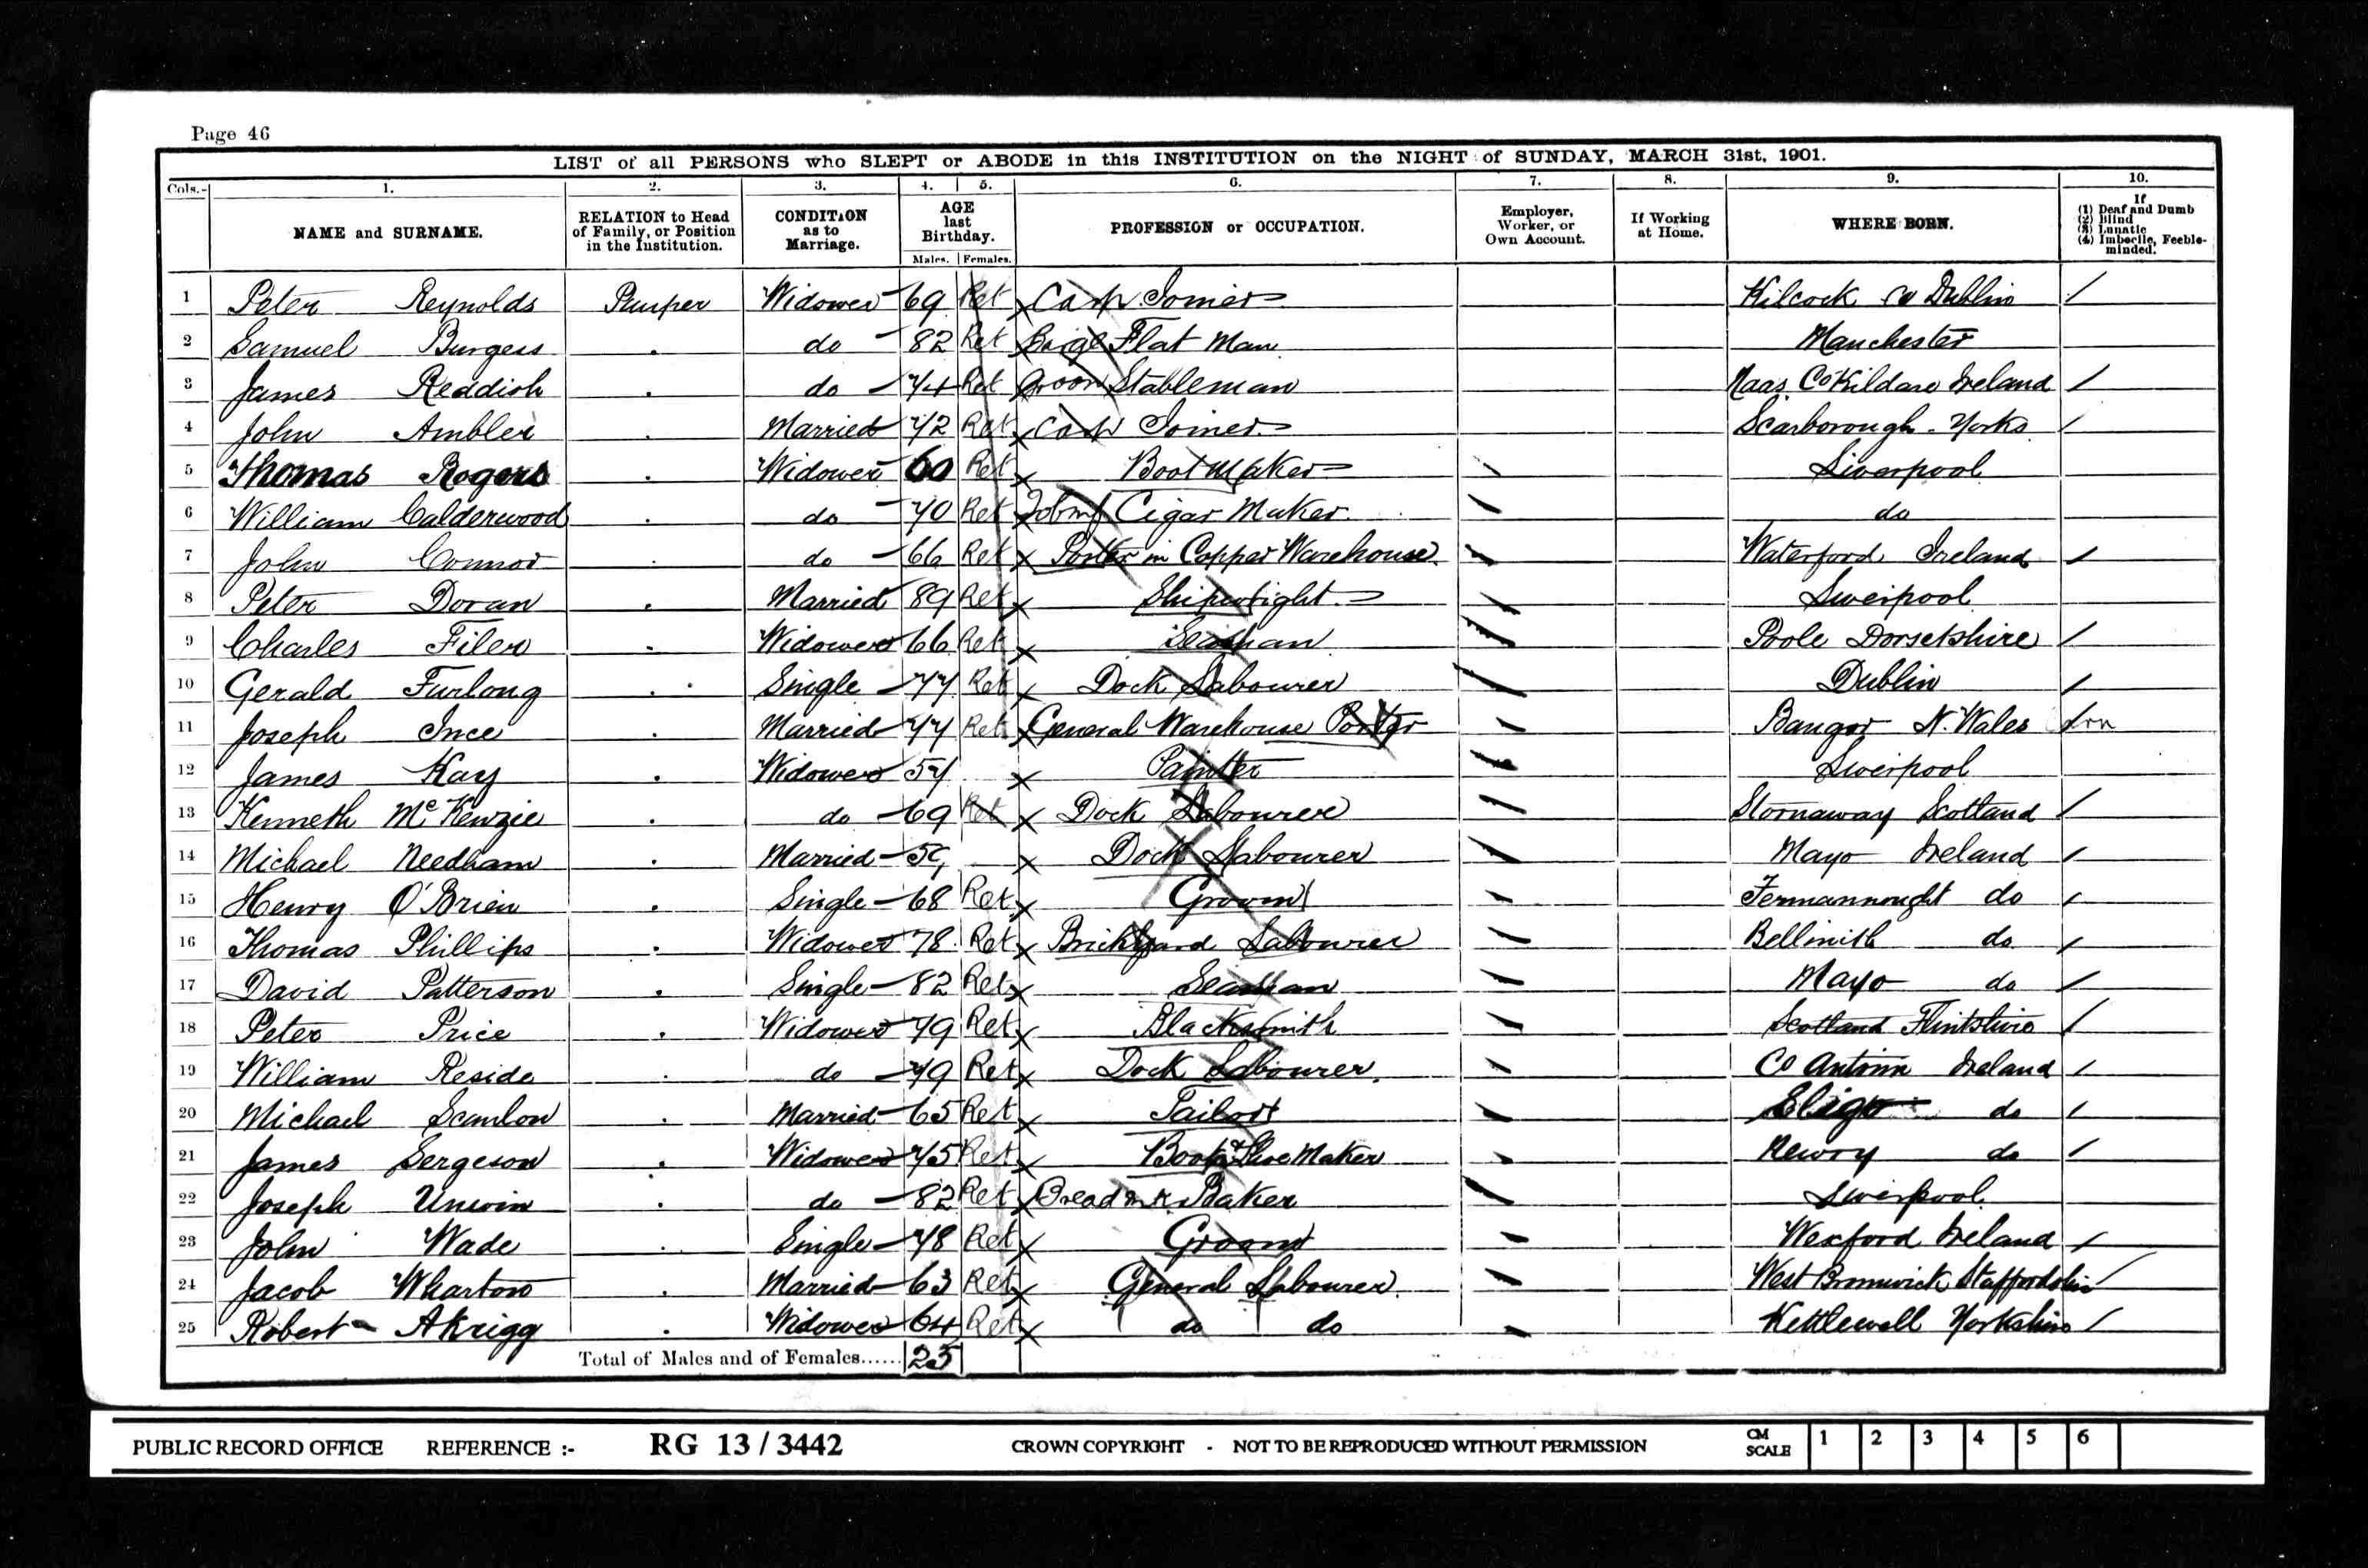 Page 46
LIST of all PERSONS who SLEPT or ABODE in this INSTITUTION on the NIGHT of SUNDAY, MARCH 31st, 1901.
Cols.- 1. 2. 3. 4. 5. 6. 7. 8. 9. 10.
NAME and SURNAME. RELATION to Head of Family, or Position in the Institution. CONDITION as to Marriage. AGE last Birthday. Males. Females. PROFESSION or OCCUPATION. Employer, Worker, or Own Account. If Working at Home. WHERE BORN. If (1) Deaf and Dumb (2) Blind (3) Lunatic (4) Imbecile, Feeble-minded.
1 Peter Reynolds Pauper Widower 69 Ret Carp Joiner Kilcock Co Dublin
2 Samuel Burgess do 82 Ret Barge Flat Man Manchester
3 James Reddish do 74 Ret Groom Stableman Naas Co Kildare Ireland
4 John Ambler Married 72 Ret Carp Joiner Scarborough - Yorks
5 Thomas Rogers Widower 60 Ret Boot Maker Liverpool
6 William Calderwood do 70 Ret Cigar Maker do
7 John Connor do 66 Ret Porter in Copper Warehouse Waterford Ireland
8 Peter Doran Married 89 Ret Shipwright Liverpool
9 Charles Filer Widower 66 Ret Seaman Poole Dorsetshire
10 Gerald Furlong Single 77 Ret Dock Labourer Dublin
11 Joseph Ince Married 77 Ret General Warehouse Porter Bangor N. Wales
12 James Kay Widower 57 Painter Liverpool
13 Kenneth McKenzie do 69 Ret Dock Labourer Stornaway Scotland
14 Michael Needham Married 59 Dock Labourer Mayo Ireland
15 Henry O'Brien Single 68 Ret Groom Fermannought do
16 Thomas Phillips Widower 78 Ret Brickyard Labourer Bellinith do
17 David Patterson Single 82 Ret Seaman Mayo do
18 Peter Price Widower 79 Ret Blacksmith Scotland Flintshire
19 William Reside do 79 Ret Dock Labourer Co Antrim Ireland
20 Michael Scanlon Married 65 Ret Tailor Sligo do
21 James Sergeson Widower 75 Ret Boot & Shoe Maker Newry do
22 Joseph Unwin do 82 Ret Bread Baker Liverpool
23 John Wade Single 78 Ret Groom Wexford Ireland
24 Jacob Wharton Married 63 Ret General Labourer West Bromwick Staffordshire
25 Robert Akrigg Widower 64 Ret do do Kettlewell Yorkshire
Total of Males and of Females...... 25
PUBLIC RECORD OFFICE REFERENCE :- RG 13 / 3442 CROWN COPYRIGHT - NOT TO BE REPRODUCED WITHOUT PERMISSION CM SCALE 1 2 3 4 5 6